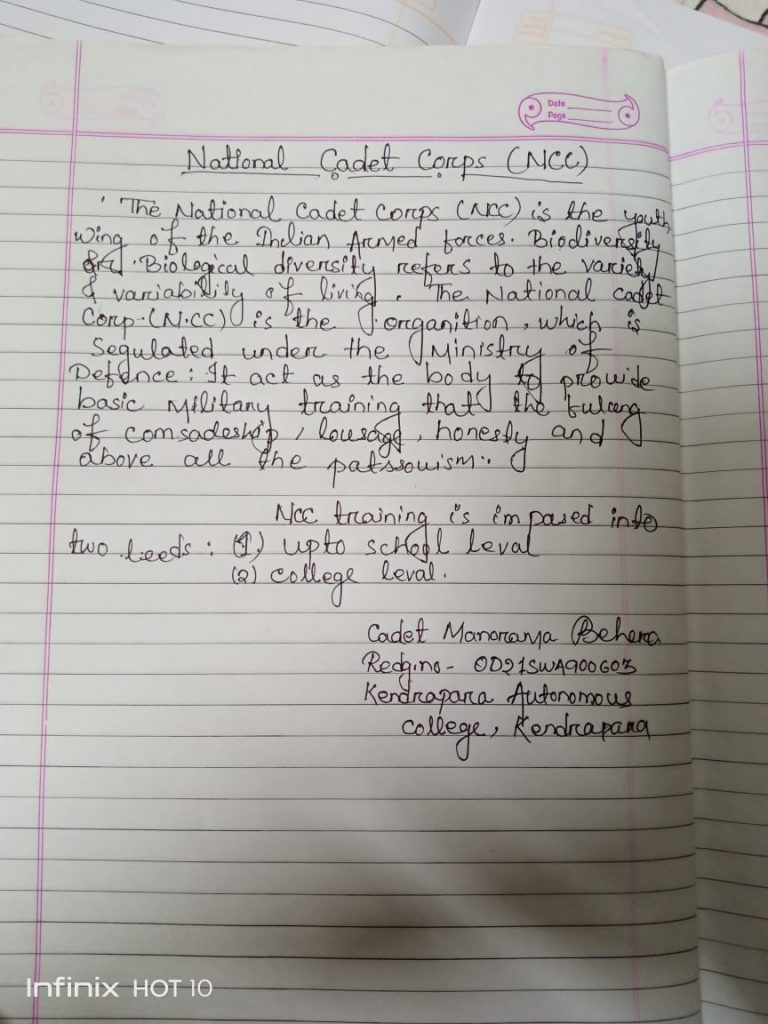 Date
Page
National Cadet Corps (NCC)
The National Cadet Corps (NCC) is the youth
wing of the Indian Armed forces. Biodiversity
Biological diversity refers to the variety
& variability of living. The National cadet
Corp. (N.CC) is the organition, which is
Segulated under the Ministry of
Defence: It act as the body to provide
basic Military training that the
of comsadeship, lousage, honesty and
above all the patssouism.
Ncc training is impared into
two leeds: (1) upto school leval
(2) college leval.
Cadet Manoranja Behera
Redg.no- OD21SWA900603
Kendrapara Autonomous
College, Kendrapara
Infinix HOT 10